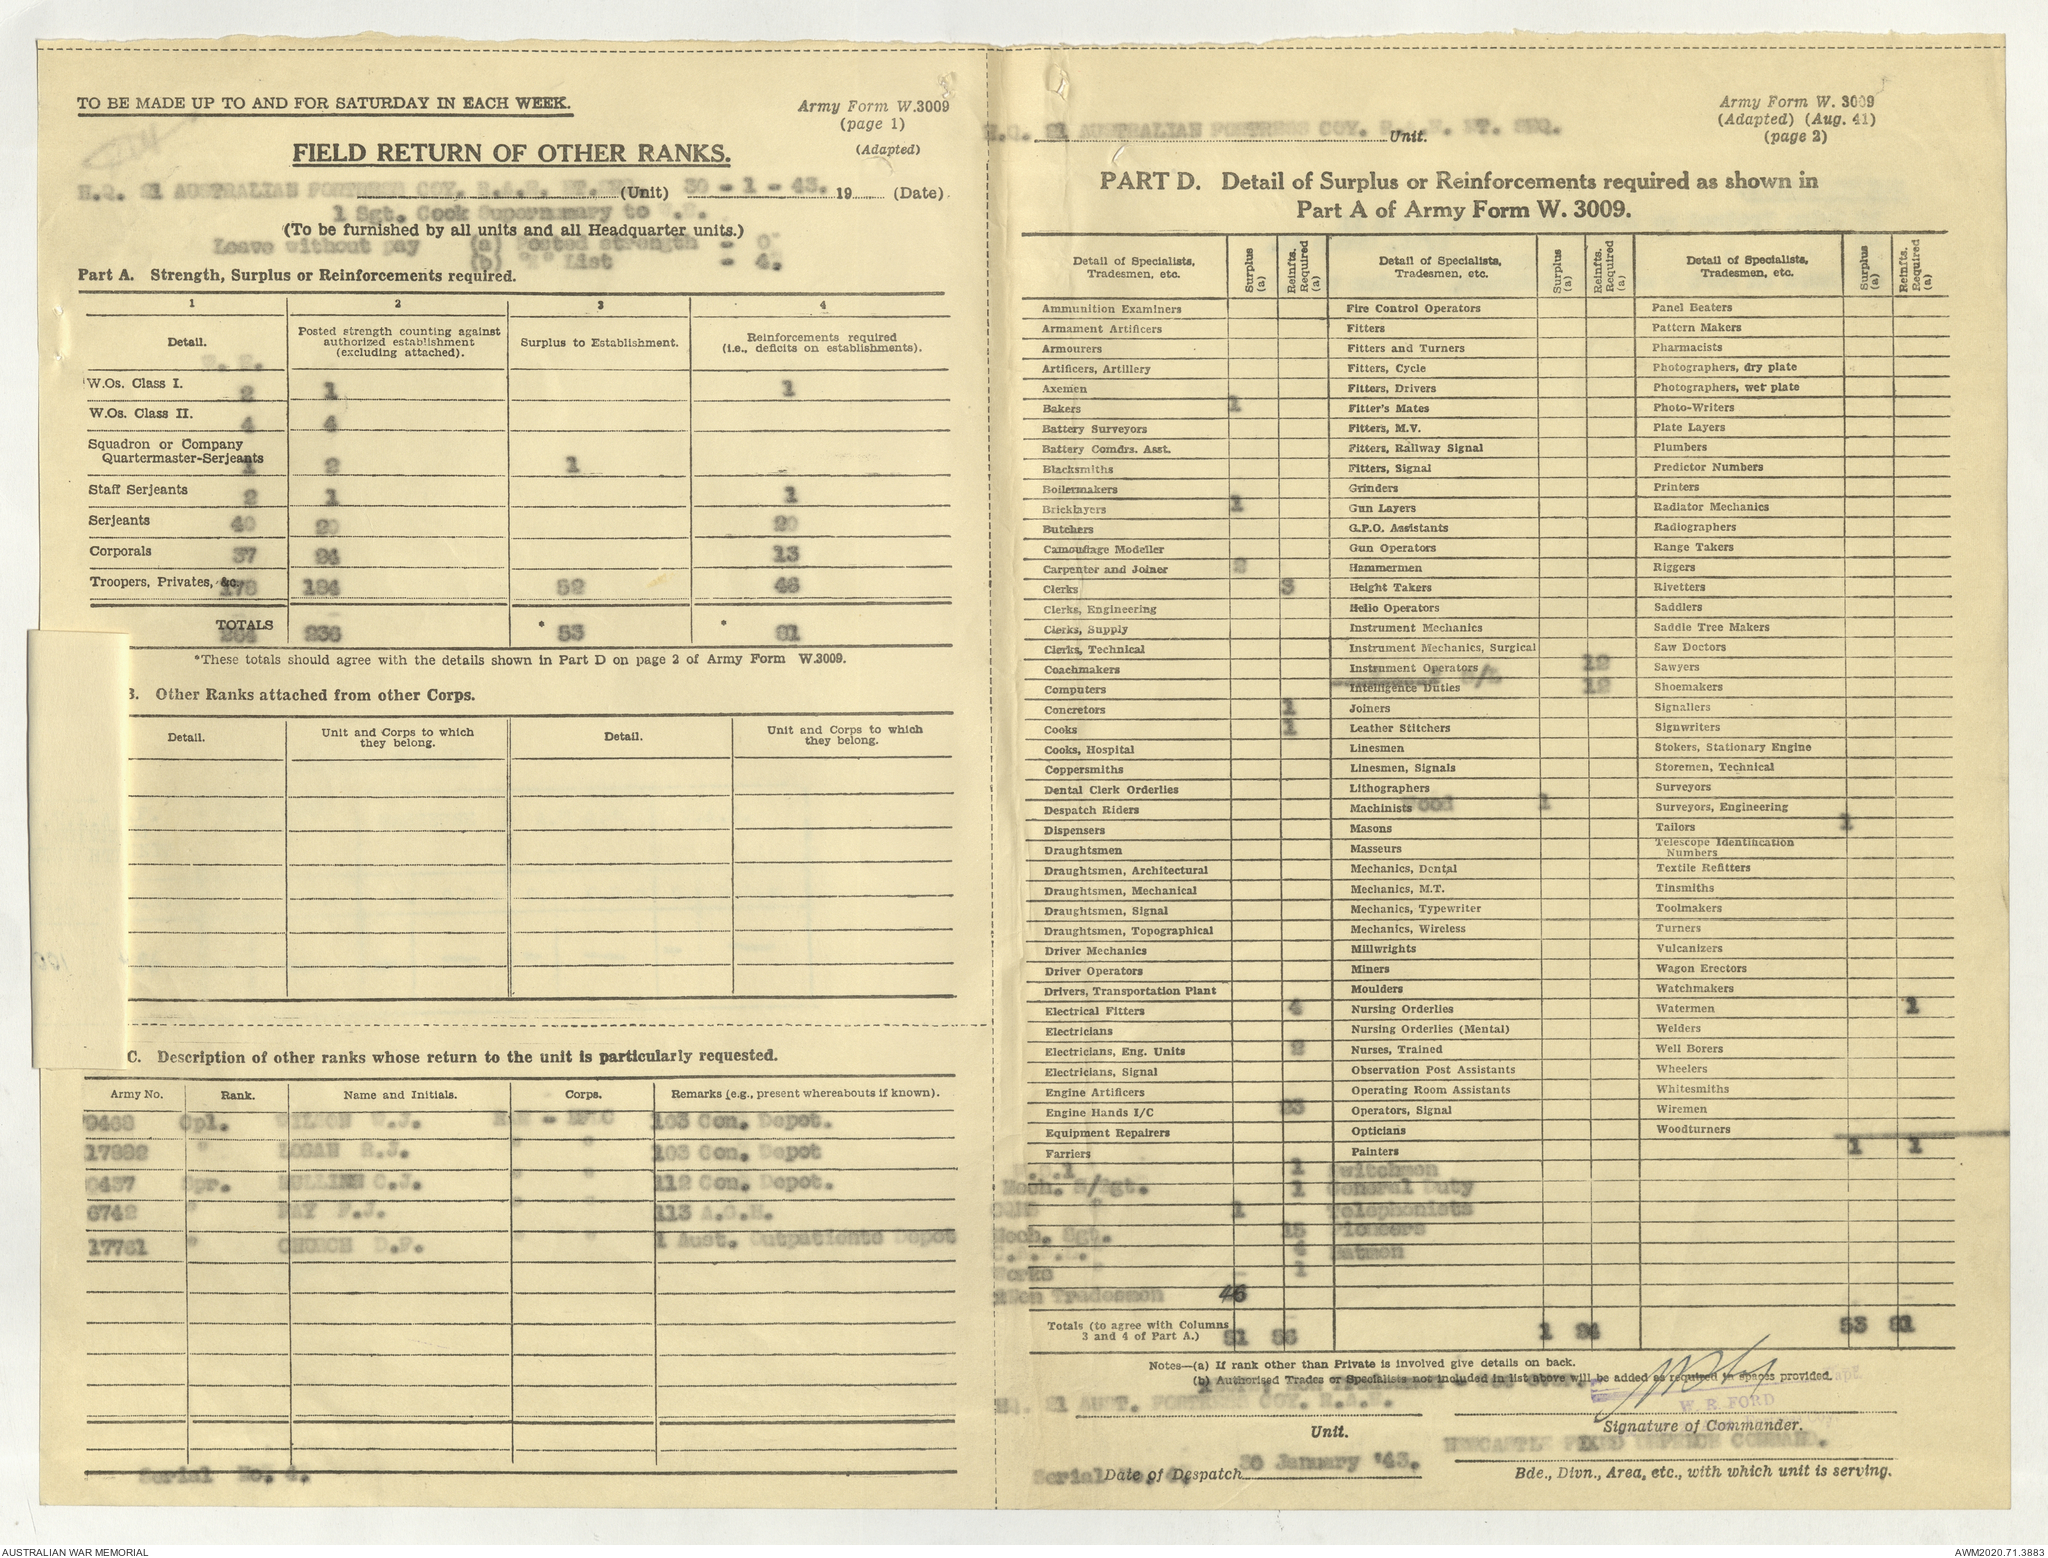 TO BE MADE UP TO AND FOR SATURDAY IN EACH WEEK.
Army Form W.3009
(page 1)
(Adapted)
FIELD RETURN OF OTHER RANKS.
H.Q. 21 AUSTRALIAN FORTRESS COY. R.A.E. (Unit) 30 - 1 - 43. 19 (Date)
1 Sgt. Cook Supernumary to W.E.
(To be furnished by all units and all Headquarter units.)
Leave without pay (a) Posted strength - 0
(b) "X" List - 4.
Part A. Strength, Surplus or Reinforcements required.
1 2 3 4
Detail. Posted strength counting against authorized establishment (excluding attached). Surplus to Establishment. Reinforcements required (i.e., deficits on establishments).
W. E.
W.Os. Class I. 2 1 1
W.Os. Class II. 4 4
Squadron or Company
Quartermaster-Serjeants 1 2 1
Staff Serjeants 2 1 1
Serjeants 40 20 20
Corporals 37 24 13
Troopers, Privates, &c. 178 184 52 46
TOTALS 264 236 * 53 * 81
*These totals should agree with the details shown in Part D on page 2 of Army Form W.3009.
B. Other Ranks attached from other Corps.
Detail. Unit and Corps to which they belong. Detail. Unit and Corps to which they belong.
C. Description of other ranks whose return to the unit is particularly requested.
Army No. Rank. Name and Initials. Corps. Remarks (e.g., present whereabouts if known).
9468 Cpl. WILSON W.J. 103 Con. Depot.
17882 " LOGAN R.J. " " 103 Con. Depot
0437 Spr. MULLINS C.J. " " 112 Con. Depot.
6742 " RAY F.J. " " 113 A.G.H.
17761 " CHURCH D.F. " " 1 Aust. Outpatients Depot
Serial No. 4.
Army Form W. 3009
(Adapted) (Aug. 41)
(page 2)
H.Q. 21 AUSTRALIAN FORTRESS COY. R.A.E. Unit.
PART D. Detail of Surplus or Reinforcements required as shown in
Part A of Army Form W. 3009.
Detail of Specialists, Tradesmen, etc. Surplus (a) Reinfts. Required (a) Detail of Specialists, Tradesmen, etc. Surplus (a) Reinfts. Required (a) Detail of Specialists, Tradesmen, etc. Surplus (a) Reinfts. Required (a)
Ammunition Examiners Fire Control Operators Panel Beaters
Armament Artificers Fitters Pattern Makers
Armourers Fitters and Turners Pharmacists
Artificers, Artillery Fitters, Cycle Photographers, dry plate
Axemen Fitters, Drivers Photographers, wet plate
Bakers 1 Fitter's Mates Photo-Writers
Battery Surveyors Fitters, M.V. Plate Layers
Battery Comdrs. Asst. Fitters, Railway Signal Plumbers
Blacksmiths Fitters, Signal Predictor Numbers
Boilermakers Grinders Printers
Bricklayers 1 Gun Layers Radiator Mechanics
Butchers G.P.O. Assistants Radiographers
Camouflage Modeller Gun Operators Range Takers
Carpenter and Joiner 2 Hammermen Riggers
Clerks 3 Height Takers Rivetters
Clerks, Engineering Hello Operators Saddlers
Clerks, Supply Instrument Mechanics Saddle Tree Makers
Clerks, Technical Instrument Mechanics, Surgical Saw Doctors
Coachmakers Instrument Operators 12 Sawyers
Computers Intelligence Duties S/L 12 Shoemakers
Concretors 1 Joiners Signallers
Cooks 1 Leather Stitchers Signwriters
Cooks, Hospital Linesmen Stokers, Stationary Engine
Coppersmiths Linesmen, Signals Storemen, Technical
Dental Clerk Orderlies Lithographers Surveyors
Despatch Riders Machinists Wood 1 Surveyors, Engineering
Dispensers Masons Tailors 1
Draughtsmen Masseurs Telescope Identification Numbers
Draughtsmen, Architectural Mechanics, Dental Textile Refitters
Draughtsmen, Mechanical Mechanics, M.T. Tinsmiths
Draughtsmen, Signal Mechanics, Typewriter Toolmakers
Draughtsmen, Topographical Mechanics, Wireless Turners
Driver Mechanics Millwrights Vulcanizers
Driver Operators Miners Wagon Erectors
Drivers, Transportation Plant Moulders Watchmakers
Electrical Fitters 4 Nursing Orderlies Watermen 1
Electricians Nursing Orderlies (Mental) Welders
Electricians, Eng. Units 2 Nurses, Trained Well Borers
Electricians, Signal Observation Post Assistants Wheelers
Engine Artificers Operating Room Assistants Whitesmiths
Engine Hands I/C 23 Operators, Signal Wiremen
Equipment Repairers Opticians Woodturners
Farriers Painters 1 1
1 Switchmen
Mech. S/Sgt. 1 General Duty
CQMS " 1 Telephonists
Mech. Sgt. 15 Pioneers
4 Batmen
Works " 1
Non Tradesmen 46
Totals (to agree with Columns 3 and 4 of Part A.) 51 56 1 24 53 81
Notes—(a) If rank other than Private is involved give details on back.
(b) Authorised Trades or Specialists not included in list above will be added as required in spaces provided.
HQ. 21 AUST. FORTRESS COY. R.A.E.
W. R. FORD
Unit.
Signature of Commander.
NEWCASTLE FIXED DEFENCE COMMAND.
Serial No. 4. Date of Despatch 30 January '43.
Bde., Divn., Area, etc., with which unit is serving.
AUSTRALIAN WAR MEMORIAL
AWM2020.71.3883